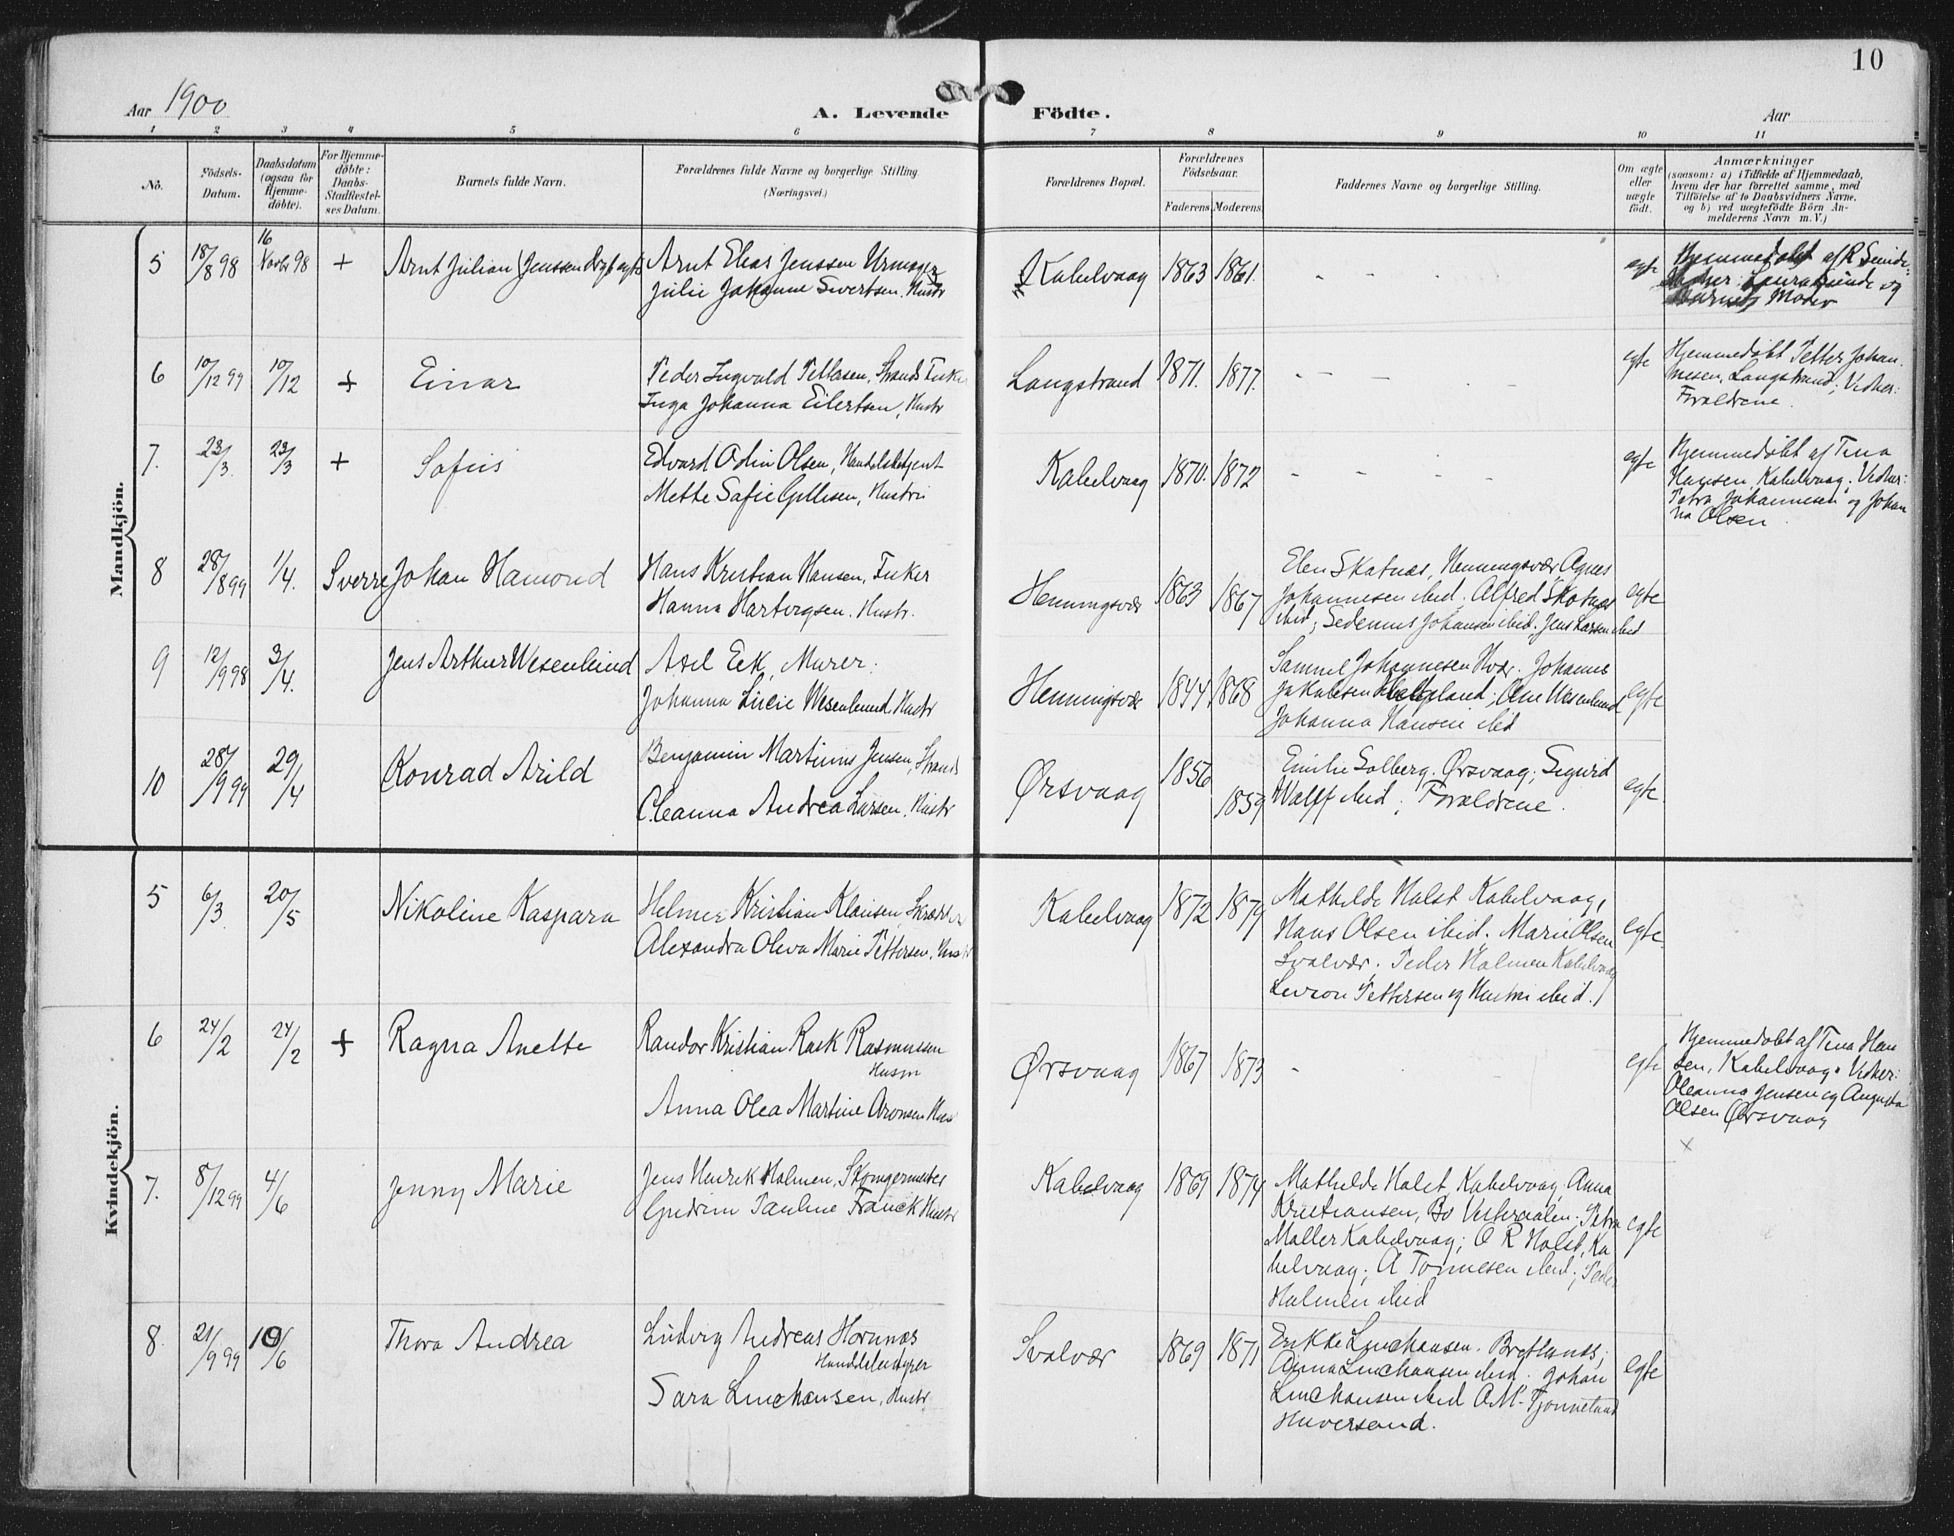 10
Aar 1900
A. Levende Födte.
Aar
1 2 3 4 5 6 7 8 9 10 11
No.
Födsels-
Datum.
Daabsdatum
(ogsaa for
Hjemme-
döbte).
For Hjemme-
döbte:
Daabs-
Stadfæstel-
ses Datum.
Barnets fulde Navn.
Forældrenes fulde Navne og borgerlige Stilling
(Næringsvei.)
Forældrenes Bopæl.
Forældrenes
Födselsaar.
Faderens. Moderens.
Faddernes Navne og borgerlige Stilling.
Om ægte
eller
uægte
födt.
Anmærkninger
(saasom: a) i Tilfælde af Hjemmedaab,
hvem der har forrettet samme, med
Tilföielse af to Daabsvidners Navne,
og b) ved uægtefödte Börn An-
melderens Navn m. V.)
Mandkjön.
5 18/8 98 16 Novbr 98 + Arnt Julian (Jenssen
Arnt Elias Jenssen Urmager
Julie Johanne Sivertsen, Hustr
Kabelvaag 1863 1861. - - - egte
Hjemmedøbt af R Sunde
og
Barnets Moder
6 10/12 99 10/12 + Einar
Peder Ingvald Pettersen, Strands Fisker
Inga Johanna Eilertsen, Hustr
Langstrand 1871. 1877. - - - - - egte
Hjemmedøbt Petter Johan-
nesen, Langstrand; Vidner:
Foraldrene.
7. 23/3. 23/3 + Sofus
Edvard Odin Olsen, Handelsbetjent
Mette Sofie Gyllesen, Hustru
Kabelvaag 1870. 1872 - - - - egte
Hjemmedøbt af Tina
Hansen, Kabelvaag. Vidner:
Petra Johannesen og Johan
na Olsen
8 28/8 99 1/4. Sverre Johan Hamond
Hans Kristian Hansen, Fisker
Hanna Hartvigsen. Hustr.
Henningsvær 1863 1867
Elen Skatnas, Henningsvær Agnes
Johannesen ibid. Alfred Skotnas
ibid; Sedenius Johansen ibid. Jens Larsen ibid
egte
9 12/9 98 3/4. Jens Arthur Wesenlund
Axel Eek, Murer.
Johanna Lucie Wesenlund. Hustr
Henningsvær 1844 1868
Samuel Johannesen Hvær. Johanne
Jakobsen Helgeland; Olene Wesenlund
Johanna Hansen ibid
egte
10 28/9 99 29/4 Konrad Arild
Benjamin Martinus Jensen, Strands
Oleanna Andrea Larsen, Hustr
Ørsvaag 1856 1859
Emilie Solberg. Ørsvaag; Sigurd
Wolff ibid; Foraldrene.
egte
Kvindekjön.
5 6/3. 20/5 Nikoline Kaspara
Helmer Kristian Klausen, Skrædder
Alexandra Oleva Marie Pettersen. Hustr
Kabelvaag 1872 1879
Mathilde Holst Kabelvaag,
Hans Olsen ibid. Marie Olsen
Svolvær. Peder Holmen Kabelvaag
Levion Pettersen og Hustru ibid.)
egte
6 24/2 24/2 + Ragna Anette
Randor Kristian Rask Rasmussen
Husm
Anna Olea Martine Aronsen Hus
Ørsvaag 1867 1873 - egte
Hjemmedøbt af Tina Han
sen, Kabelvaag. Vidner:
Oleanna Jensen og Augusta
Olsen Ørsvaag
x
7. 8/12 99 4/6 Jenny Marie
Jens Henrik Holmen, Stomgermester
Gudrun Pauline Franck Hustr
Kabelvaag 1869 1874
Mathilde Holst, Kabelvaag, Anna
Kristiansen, Bo Vesteraalen; Petra
Møller Kabelvaag; O R Holst, Ka
belvaag; A Tønnesen ibid; Peder
Holmen ibid
egte
8. 21/9 99 10/6 Thora Andrea
Ludvig Andreas Hornnæs
Handelsbestyrer
Sara Linchausen, Hustr
Svolvær 1869 1871
Erikke Linchausen. Brettesnæs;
Anna Linchausen ibid. Johan
Linchausen ibid A.M. Tjønnelund
Huversand.
egte